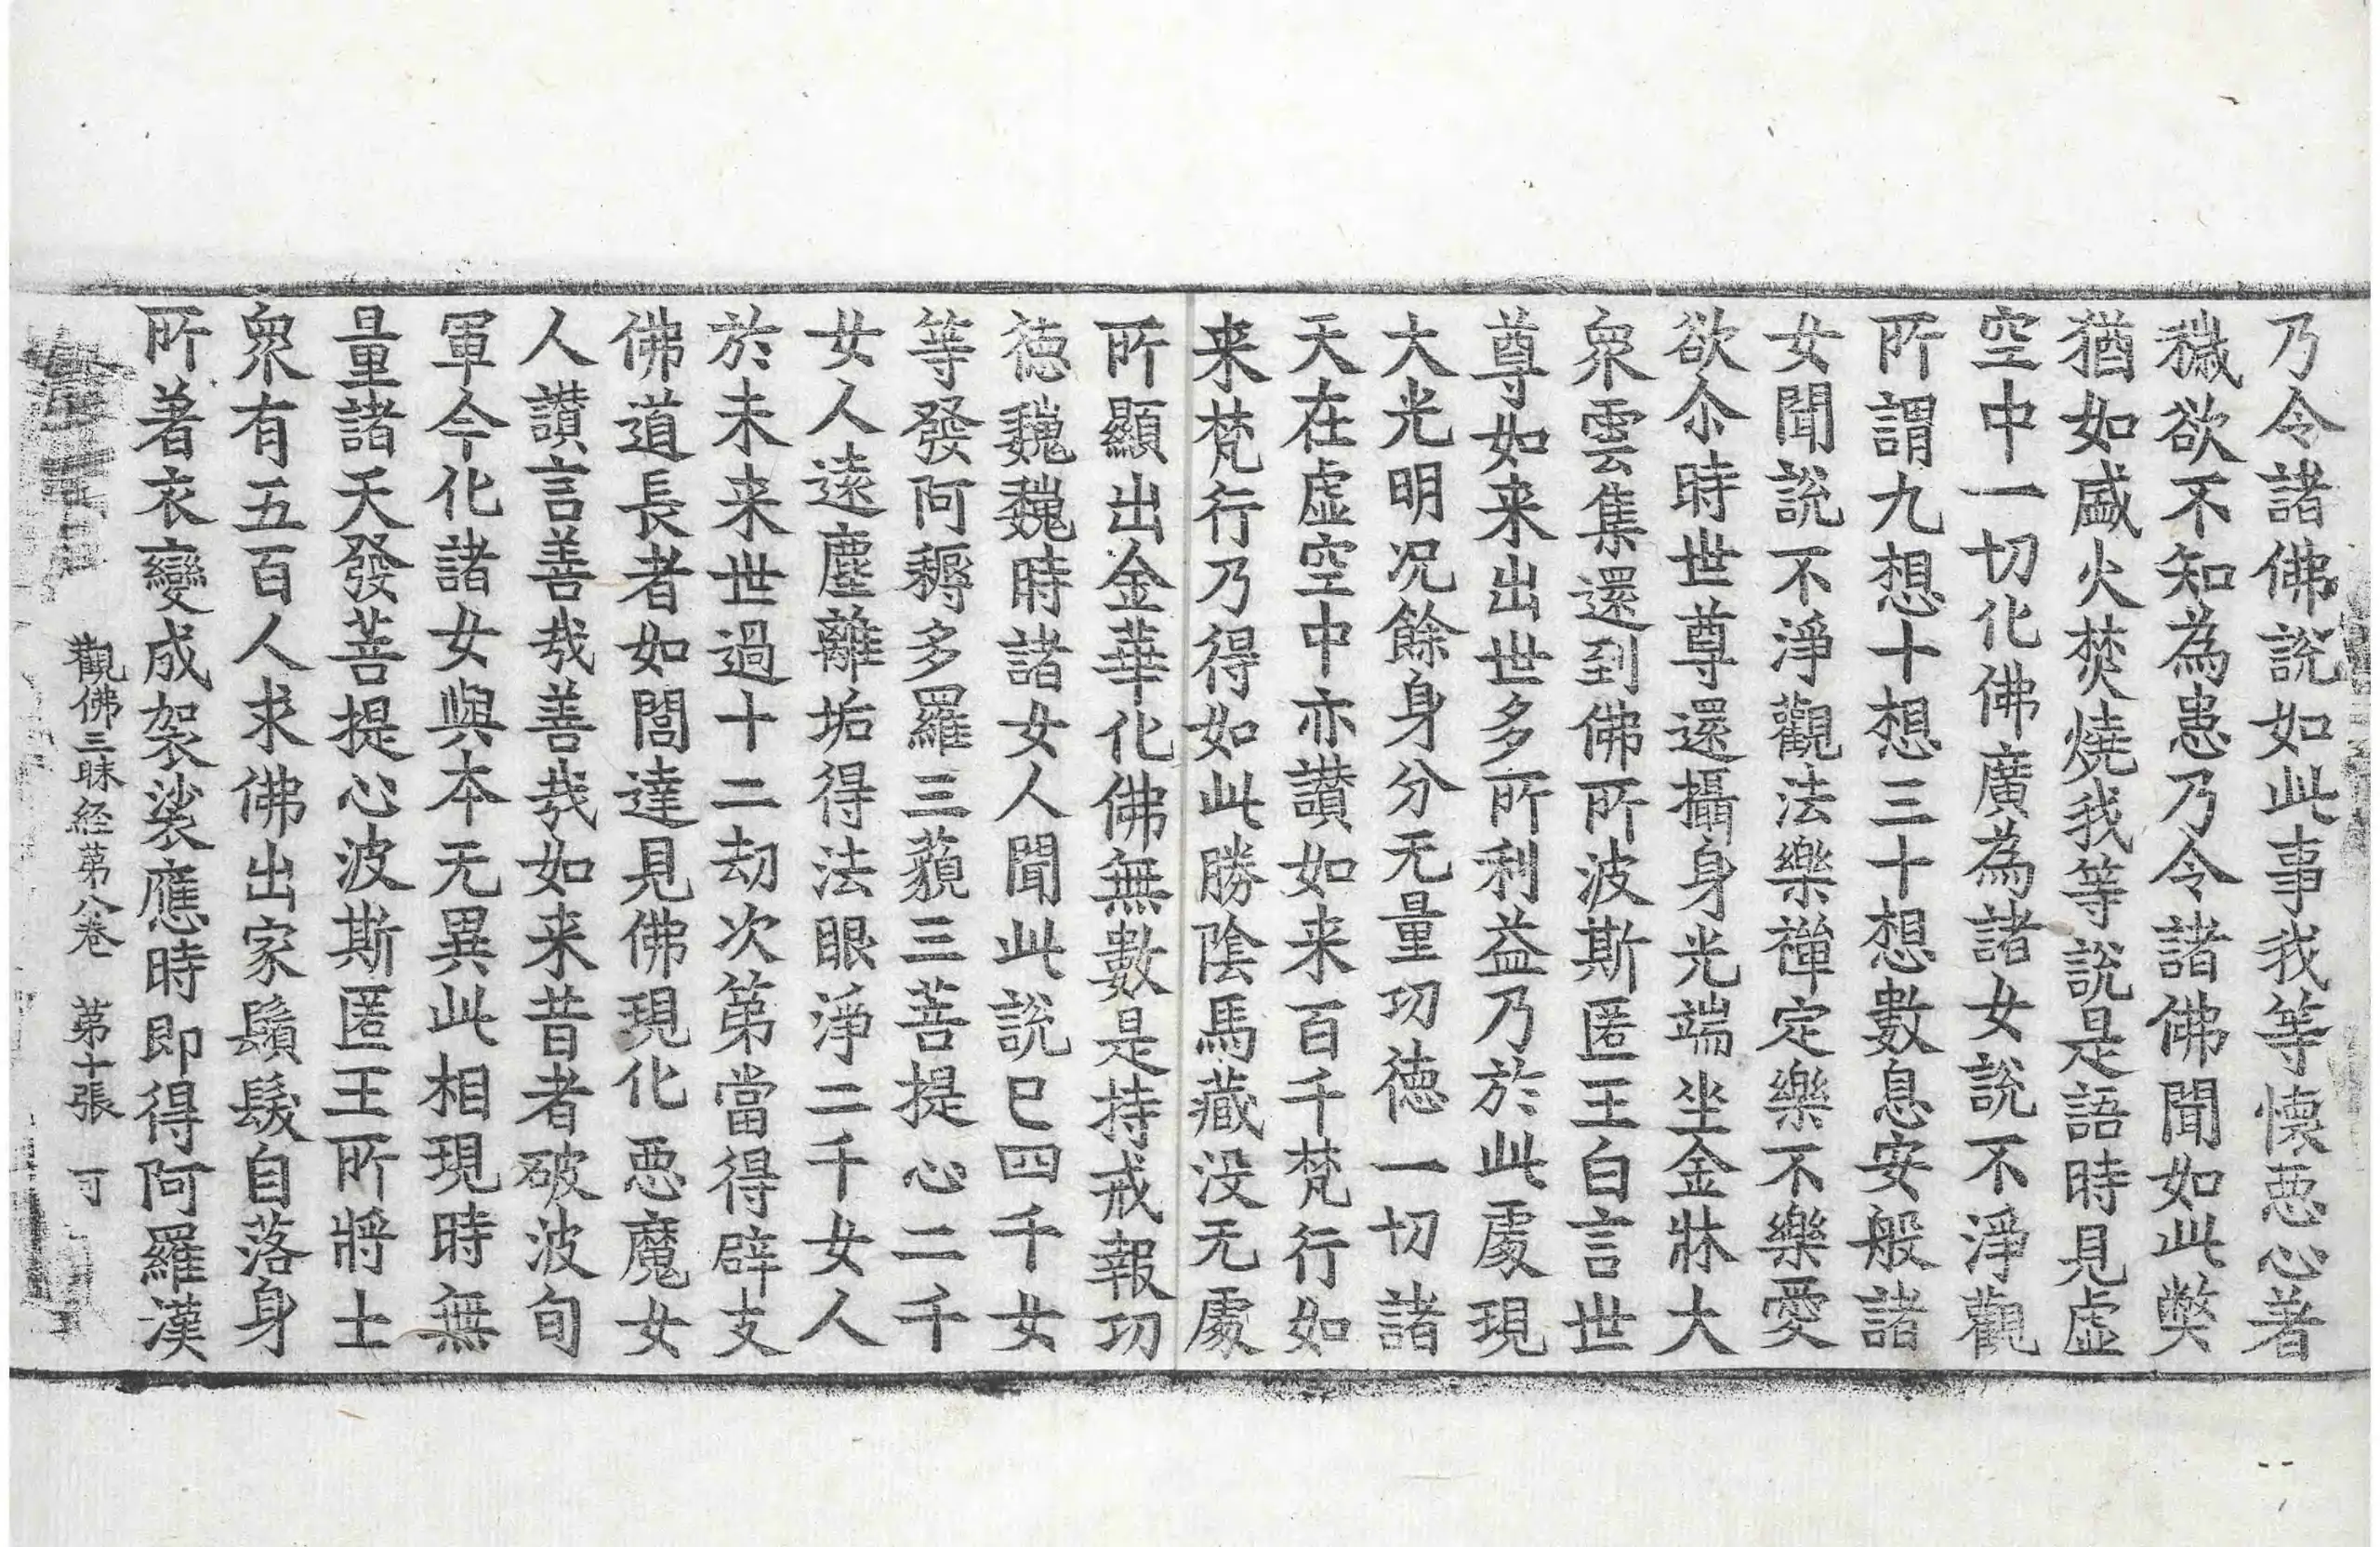 乃令諸佛說如此事我等懷悪心著
穢欲不知為患乃令諸佛聞如此弊
猶如盛火焚燒我等說是語時見虛
空中一切化佛廣為諸女說不淨觀
所謂九想十想三十想數息安般諸
女聞說不淨觀法樂禪定樂不樂愛
欲尒時世尊還攝身光端坐金牀大
衆雲集還到佛所波斯匿王白言世
尊如来出世多所利益乃於此處現
大光明况餘身分无量功德一切諸
天在虛空中亦讃如来百千梵行如
来梵行乃得如此勝陰馬藏没无處
所顯出金華化佛無數是持戒報功
德巍巍時諸女人聞此說已四千女
等發阿耨多羅三藐三菩提心二千
女人遠塵離垢得法眼淨二千女人
於未来世過十二劫次第當得辟支
佛道長者如閭達見佛現化悪魔女
人讃言善哉善哉如来昔者破波旬
軍今化諸女與本无異此相現時無
量諸天發菩提心波斯匿王所將士
衆有五百人求佛出家鬚髮自落身
所著衣變成袈裟應時即得阿羅漢
觀佛三昧経第八卷 第十張 可